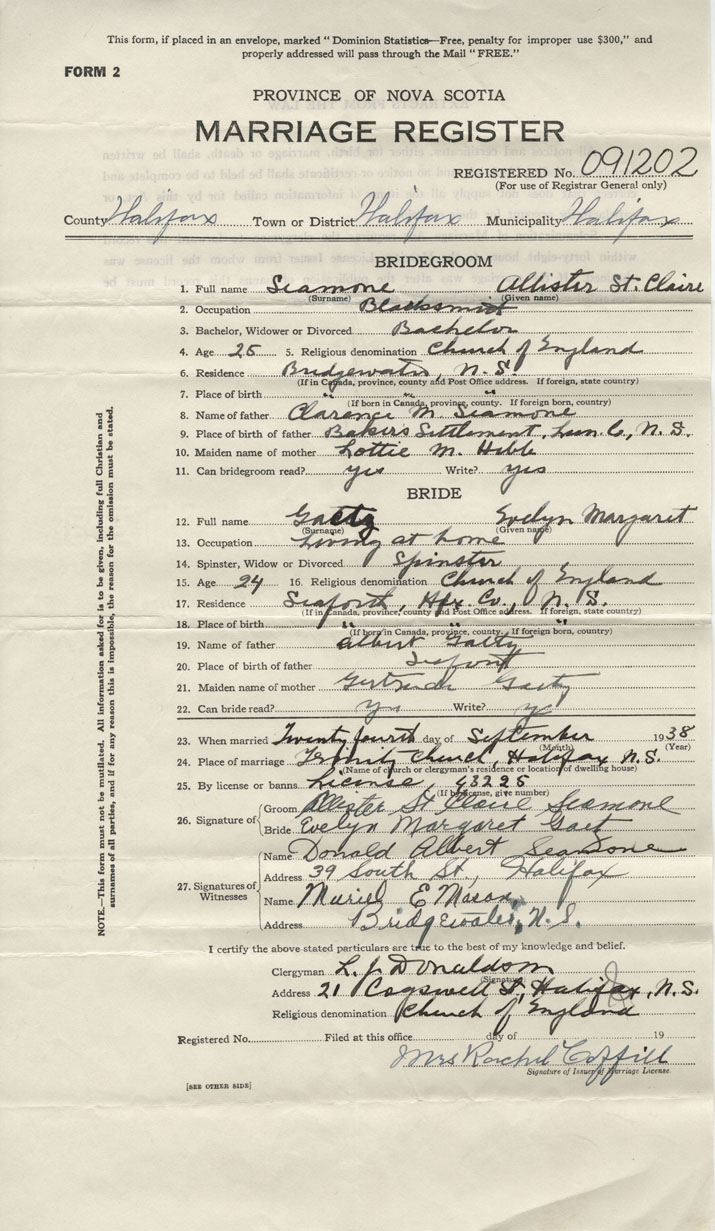 This form, if placed in an envelope, marked "Dominion Statistics—Free, penalty for improper use $300," and
properly addressed will pass through the Mail "FREE."
FORM 2
PROVINCE OF NOVA SCOTIA
MARRIAGE REGISTER
REGISTERED No. 091202
(For use of Registrar General only)
County Halifax Town or District Halifax Municipality Halifax
BRIDEGROOM
1. Full name Seamone Allister St. Claire
(Surname) (Given name)
2. Occupation Blacksmith
3. Bachelor, Widower or Divorced Bachelor
4. Age 25 5. Religious denomination Church of England
6. Residence Bridgewater, N.S.
(If in Canada, province, county and Post Office address. If foreign, state country)
7. Place of birth " " "
(If born in Canada, province, county. If foreign born, country)
8. Name of father Clarence M. Seamone
9. Place of birth of father Bakers Settlement, Lun. Co., N.S.
10. Maiden name of mother Lottie M. Hebb
11. Can bridegroom read? yes Write? yes
BRIDE
12. Full name Gaetz Evelyn Margaret
(Surname) (Given name)
13. Occupation Living at home
14. Spinster, Widow or Divorced Spinster
15. Age 24 16. Religious denomination Church of England
17. Residence Seaforth, Hfx. Co., N.S.
(If in Canada, province, county and Post Office address. If foreign, state country)
18. Place of birth " " "
(If born in Canada, province, county. If foreign born, country)
19. Name of father Albert Gaetz
20. Place of birth of father Seaforth
21. Maiden name of mother Gertrude Gaetz
22. Can bride read? yes Write? yes
23. When married Twenty fourth day of September 1938
(Month) (Year)
24. Place of marriage Trinity Church, Halifax N.S.
(Name of church or clergyman's residence or location of dwelling house)
25. By license or banns License, 43225
(If by license, give number)
26. Signature of Groom Allister St Claire Seamone
Bride Evelyn Margaret Gaetz
27. Signatures of Witnesses
Name Donald Albert Seamone
Address 39 South St., Halifax
Name Muriel E Mason
Address Bridgewater, N.S.
I certify the above stated particulars are true to the best of my knowledge and belief.
Clergyman L. J. Donaldson
(Signature)
Address 21 Cogswell St, Halifax, N.S.
Religious denomination Church of England
Registered No. Filed at this office day of 19
Mrs Rachel Coffill
Signature of Issuer of Marriage License
[SEE OTHER SIDE]
NOTE.—This form must not be mutilated. All information asked for is to be given, including full Christian and
surnames of all parties, and if for any reason this is impossible, the reason for the omission must be stated.